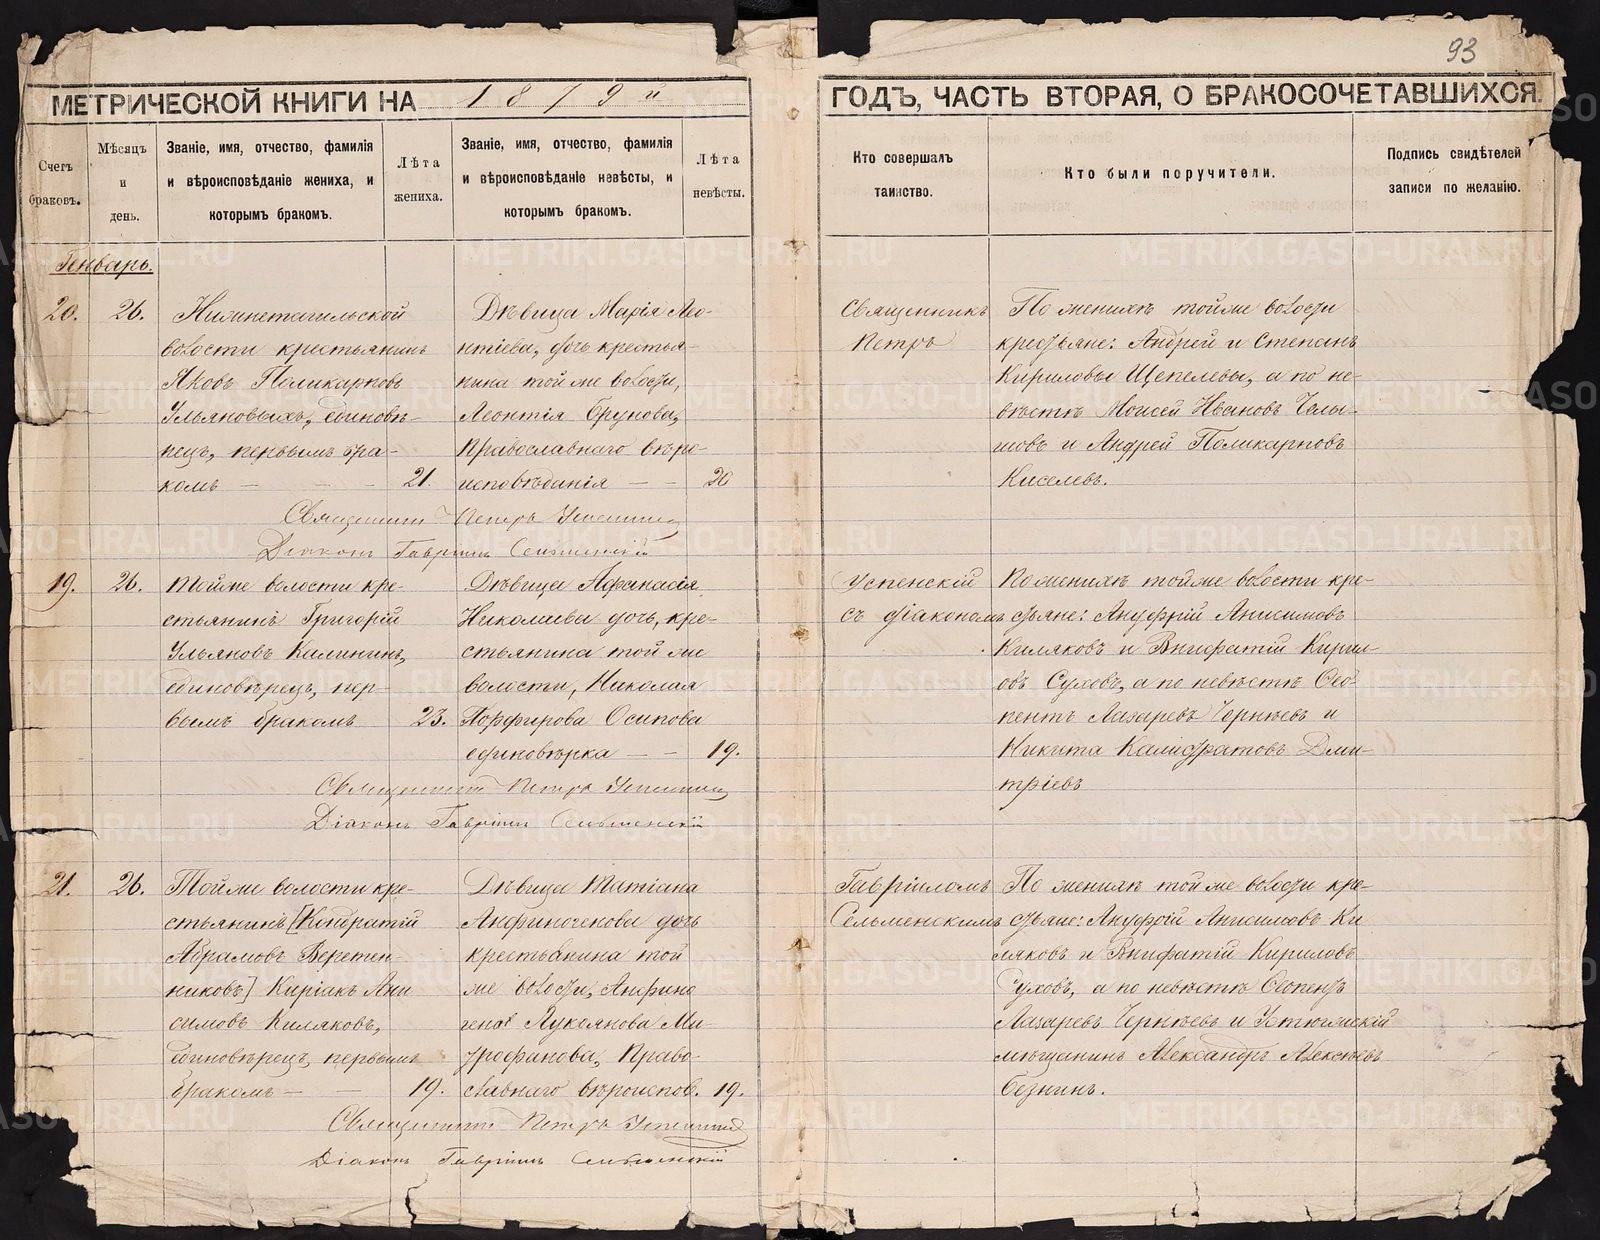 93
МЕТРИЧЕСКОЙ КНИГИ НА 1879й ГОДЪ, ЧАСТЬ ВТОРАЯ, О БРАКОСОЧЕТАВШИХСЯ.
Счетъ
браковъ.
Мѣсяцъ
и
день.
Званіе, имя, отчество, фамилія
и вѣроисповѣданіе жениха, и
которымъ бракомъ.
Лѣта
жениха.
Званіе, имя, отчество, фамилія
и вѣроисповѣданіе невѣсты, и
которымъ бракомъ.
Лѣта
невѣсты.
Кто совершалъ
таинство.
Кто были поручители.
Подпись свидѣтелей
записи по желанію.
Генварь.
20.
26.
Нижнетагильской
волости крестьянинъ
Яковъ Поликарповъ
Ульяновыхъ, единовѣ-
рецъ, первымъ бра-
комъ — 21.
Дѣвица Марія Лео-
нтіева, дочь крестья-
нина той же волости,
Леонтія Брунова,
Православнаго вѣро-
исповѣданія — — 20
Священникъ
Петръ
По женихѣ той же волости
крестьяне: Андрей и Степанъ
Кириловы Щепелевы, а по не-
вѣстѣ Моисей Ивановъ Челы-
шовъ и Андрей Поликарповъ
Киселевъ.
Священникъ Петръ Успенскій
Діаконъ Гавріилъ Сельменскій
19.
26.
Той же волости кре-
стьянинъ Григорій
Ульяновъ Калининъ,
единовѣрецъ, пер-
вымъ бракомъ 23.
Дѣвица Афанасія
Николаева дочь, кре-
стьянина той же
волости, Николая
Порфирова Осипова
единовѣрка — — 19.
Успенскій
съ діакономъ
По женихѣ той же волости кре-
стьяне: Ануфрій Анисимовъ
Киляковъ и Внифатій Кирил-
овъ Суховъ, а по невѣстѣ Сео-
пентъ Лазаревъ Чернѣевъ и
Никита Калистратовъ Дми-
тріевъ
Священникъ Петръ Успенскій
Діаконъ Гавріилъ Сельменскій
21.
26.
Той же волости кре-
стьянинъ [Кондратій
Абрамовъ Веретен-
никовъ] Киріакъ Ани
симовъ Киляковъ,
единовѣрецъ, первымъ
бракомъ — — 19.
Дѣвица Татіана
Анфиногенова дочь
крестьянина той
же волости, Анфино
гена Лукоянова Ми-
трофанова, Право-
славнаго вѣроиспов. 19.
Гавріиломъ
Сельменскимъ
По женихѣ той же волости кре-
стьяне: Ануфрій Анисимовъ Ки
ляковъ и Внифатій Кириловъ
Суховъ, а по невѣстѣ
Лазаревъ Чернѣевъ и Устюжскій
мѣщанинъ Александръ Алексѣевъ
Безнинъ.
Священникъ Петръ Успенскій
Діаконъ Гавріилъ Сельменскій
METRIKI.GASO-URAL.RU